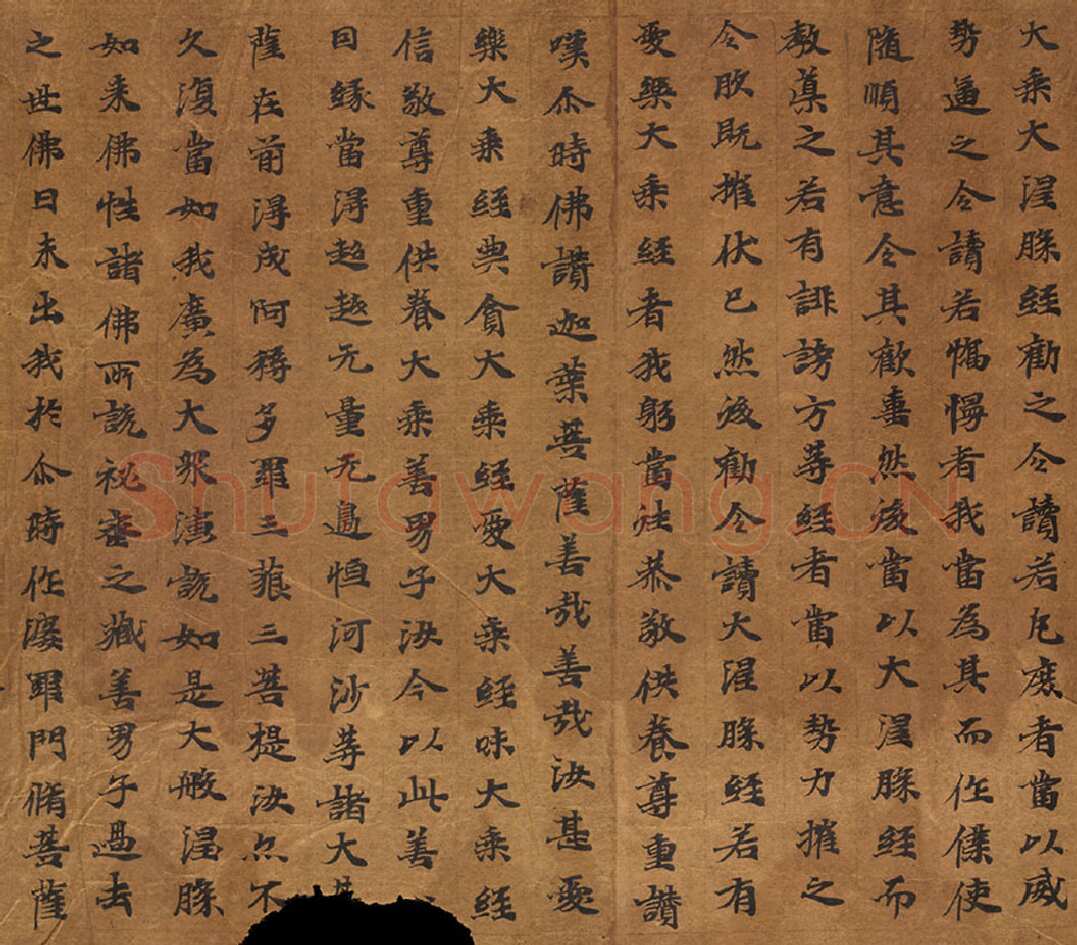 大乘大涅槃經勸之令讀若凡庶者當以威
勢逼之令讀若憍慢者我當為其而作僕使
隨順其意令其歡喜然後當以大涅槃經而
教導之若有誹謗方等經者當以勢力摧之
令既摧伏已然後勸令讀大涅槃經若有
愛樂大乘經者我躬當往恭敬供養尊重讚
嘆尒時佛讚迦葉菩薩善哉善哉汝甚愛
樂大乘經典貪大乘經愛大乘經味大乘經
信敬尊重供養大乘善男子汝今以此善
因緣當得超越无量无邊恒河沙等諸大
薩在前得成阿耨多羅三藐三菩提汝亦不
久復當如我廣為大眾演說如是大般涅槃
如來佛性諸佛所說祕密之藏善男子過去
之世佛日未出我於尒時作婆羅門脩菩薩
Shufawang.CN